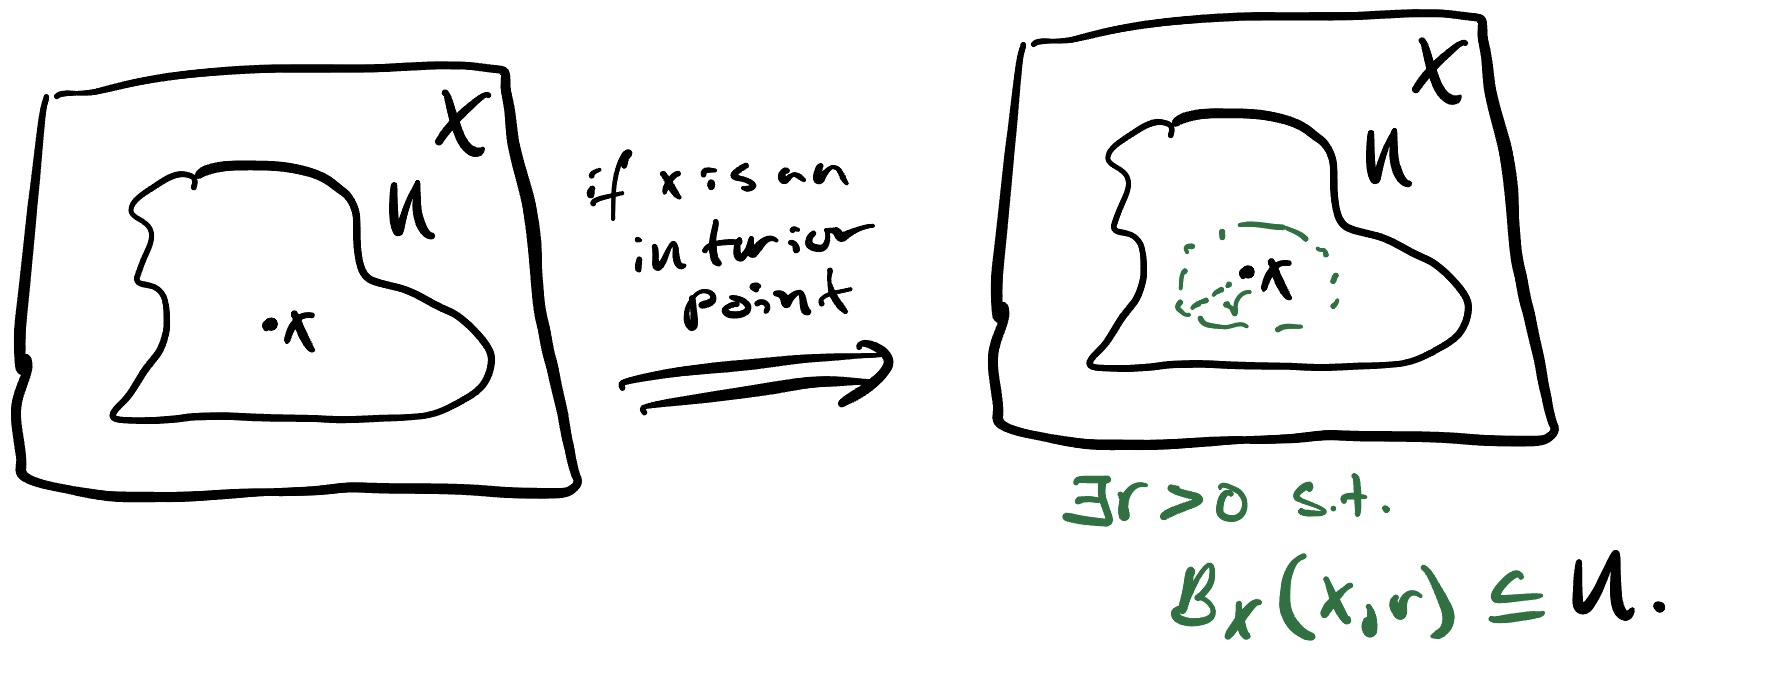 X
U
x
if x is an
interior
point
X
U
x
r
∃r > 0 s.t.
B_X(x,r) ⊆ U.